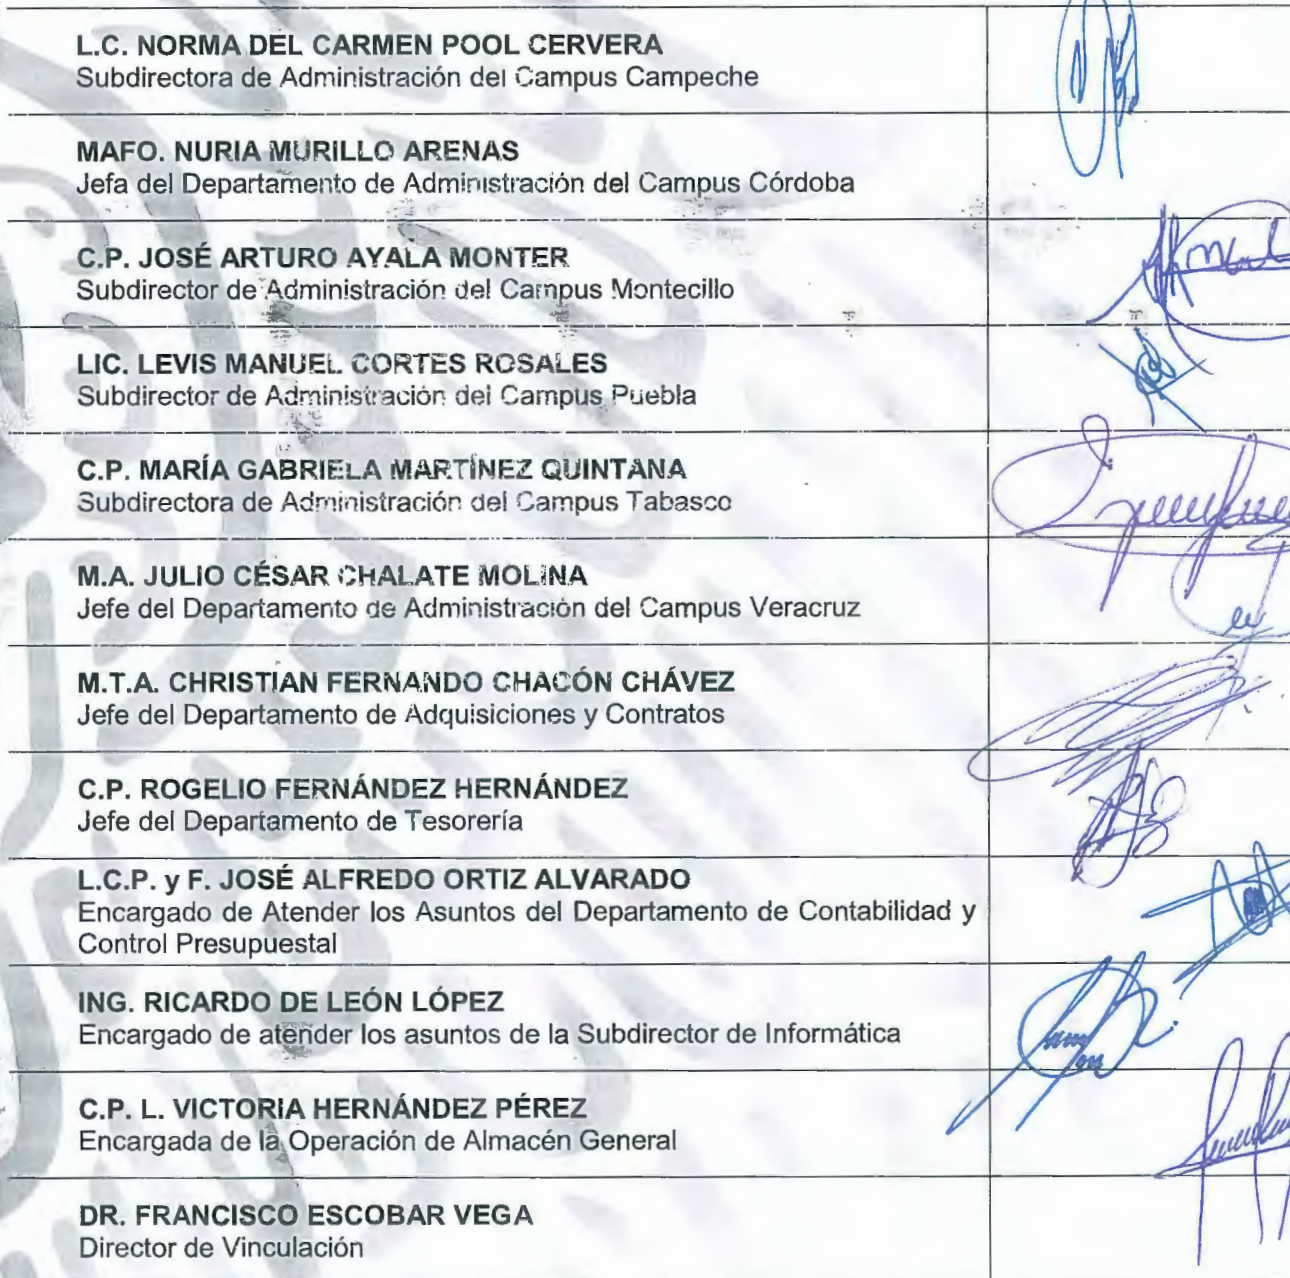 L.C. NORMA DEL CARMEN POOL CERVERA
Subdirectora de Administración del Campus Campeche
MAFO. NURIA MURILLO ARENAS
Jefa del Departamento de Administración del Campus Córdoba
C.P. JOSÉ ARTURO AYALA MONTER
Subdirector de Administración del Campus Montecillo
LIC. LEVIS MANUEL CORTES ROSALES
Subdirector de Administración del Campus Puebla
C.P. MARÍA GABRIELA MARTÍNEZ QUINTANA
Subdirectora de Administración del Campus Tabasco
M.A. JULIO CÉSAR CHALATE MOLINA
Jefe del Departamento de Administración del Campus Veracruz
M.T.A. CHRISTIAN FERNANDO CHACÓN CHÁVEZ
Jefe del Departamento de Adquisiciones y Contratos
C.P. ROGELIO FERNÁNDEZ HERNÁNDEZ
Jefe del Departamento de Tesorería
L.C.P. y F. JOSÉ ALFREDO ORTIZ ALVARADO
Encargado de Atender los Asuntos del Departamento de Contabilidad y
Control Presupuestal
ING. RICARDO DE LEÓN LÓPEZ
Encargado de atender los asuntos de la Subdirector de Informática
C.P. L. VICTORIA HERNÁNDEZ PÉREZ
Encargada de la Operación de Almacén General
DR. FRANCISCO ESCOBAR VEGA
Director de Vinculación